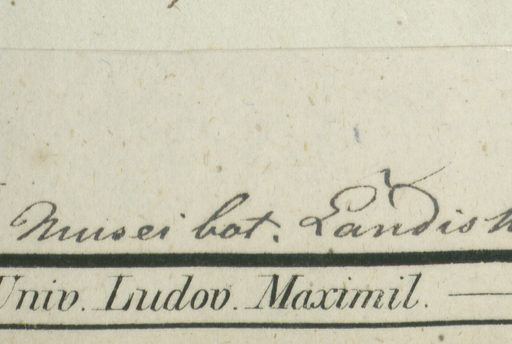 Musei bot. Landish
Univ. Ludov. Maximil. —